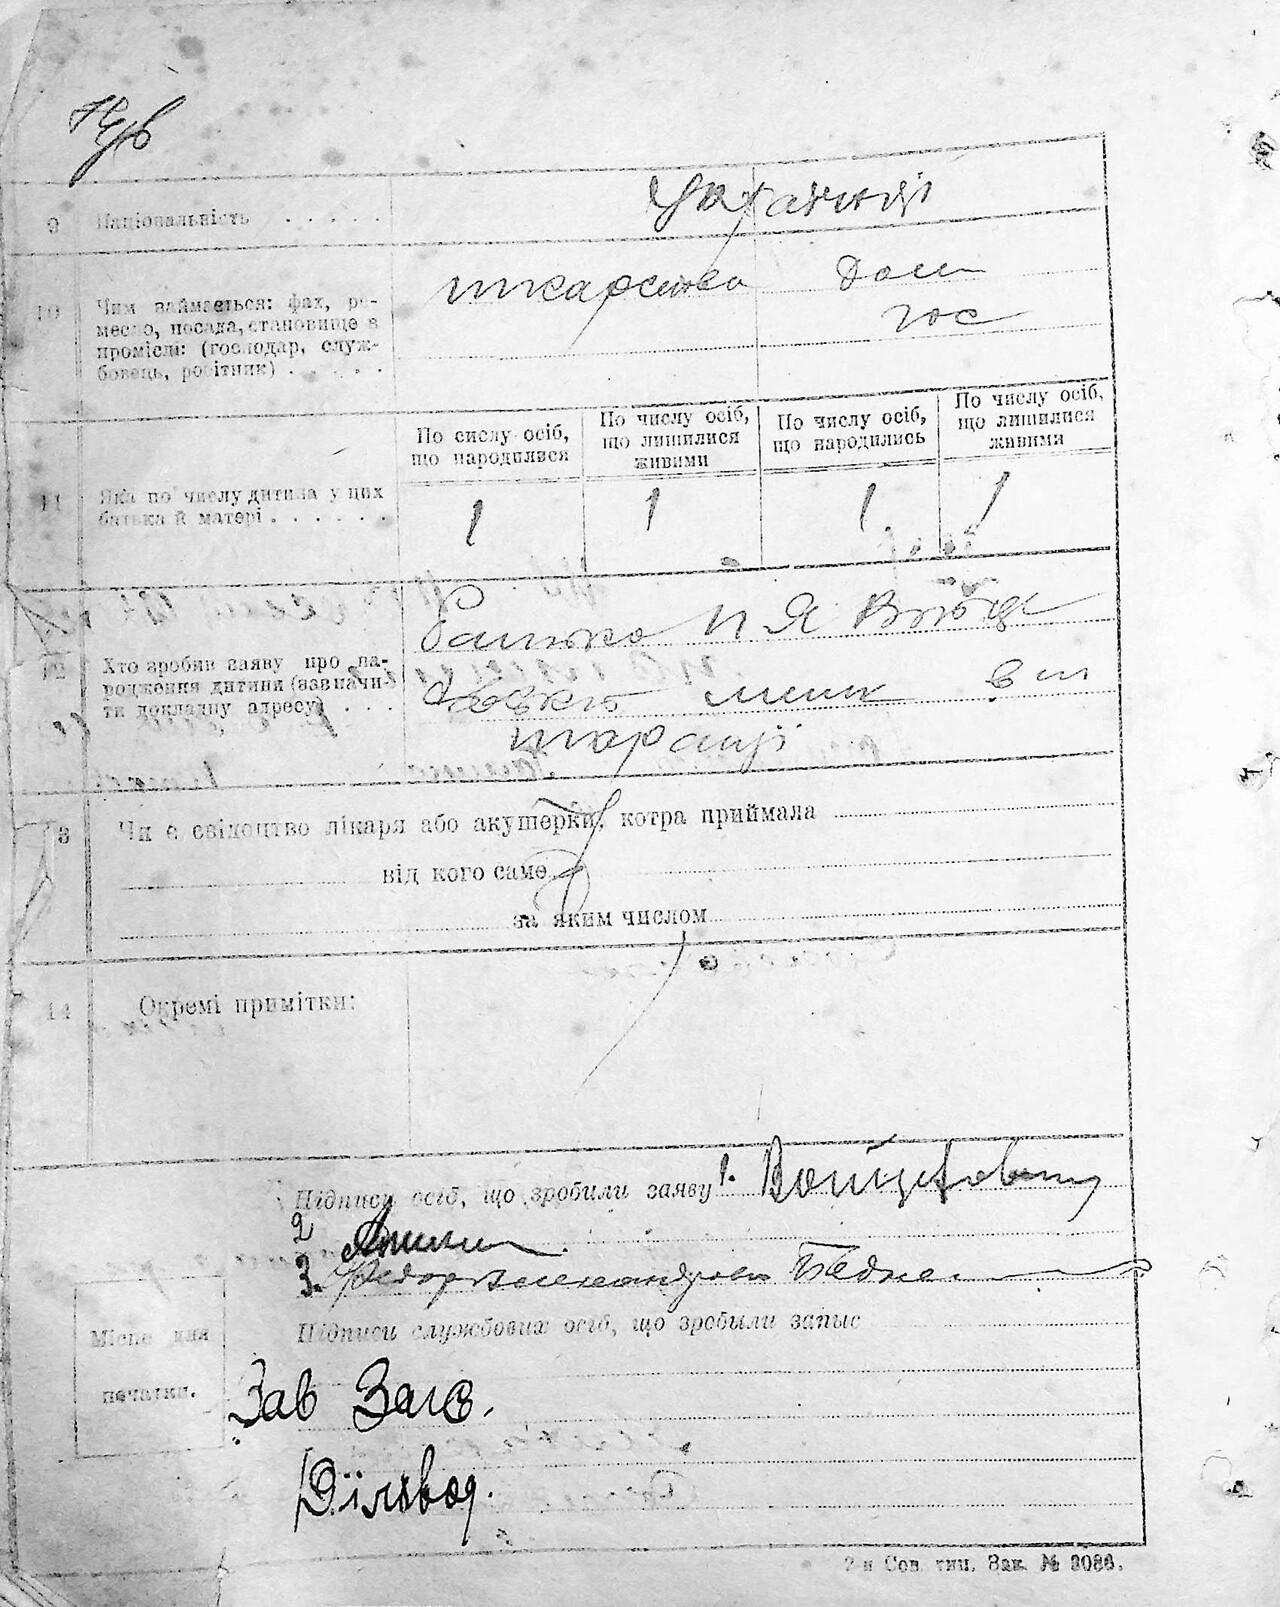 9 Національність . . . . . Українці
10 Чим займається: фах, ре-
месло, посада, становище в
промислі: (господар, служ-
бовець, робітник) . . . . .
Дом
гос
По сислу осіб,
що народилися
По числу осіб,
що лишилися
живими
По числу осіб,
що народились
По числу осіб,
що лишилися
живими
11 Яка по числу дитина у цих
батька й матері . . . . . .
1 1 1 1
12 Хто зробив заяву про на-
родження дитини (зазначи-
ти докладну адресу) . . .
Батько П Я
в м
Таращі
13 Чи є свідоцтво лікаря або акушерки, котра приймала
від кого саме
за яким числом
14 Окремі примітки:
Підписи осіб, що зробили заяву 1.
2
3. Федор Александрович
Підписи службових осіб, що зробыли запыс
Місце для
печатки.
Зав Загс.
Діловод.
2-я Сов. тип. Зак. № 3086.